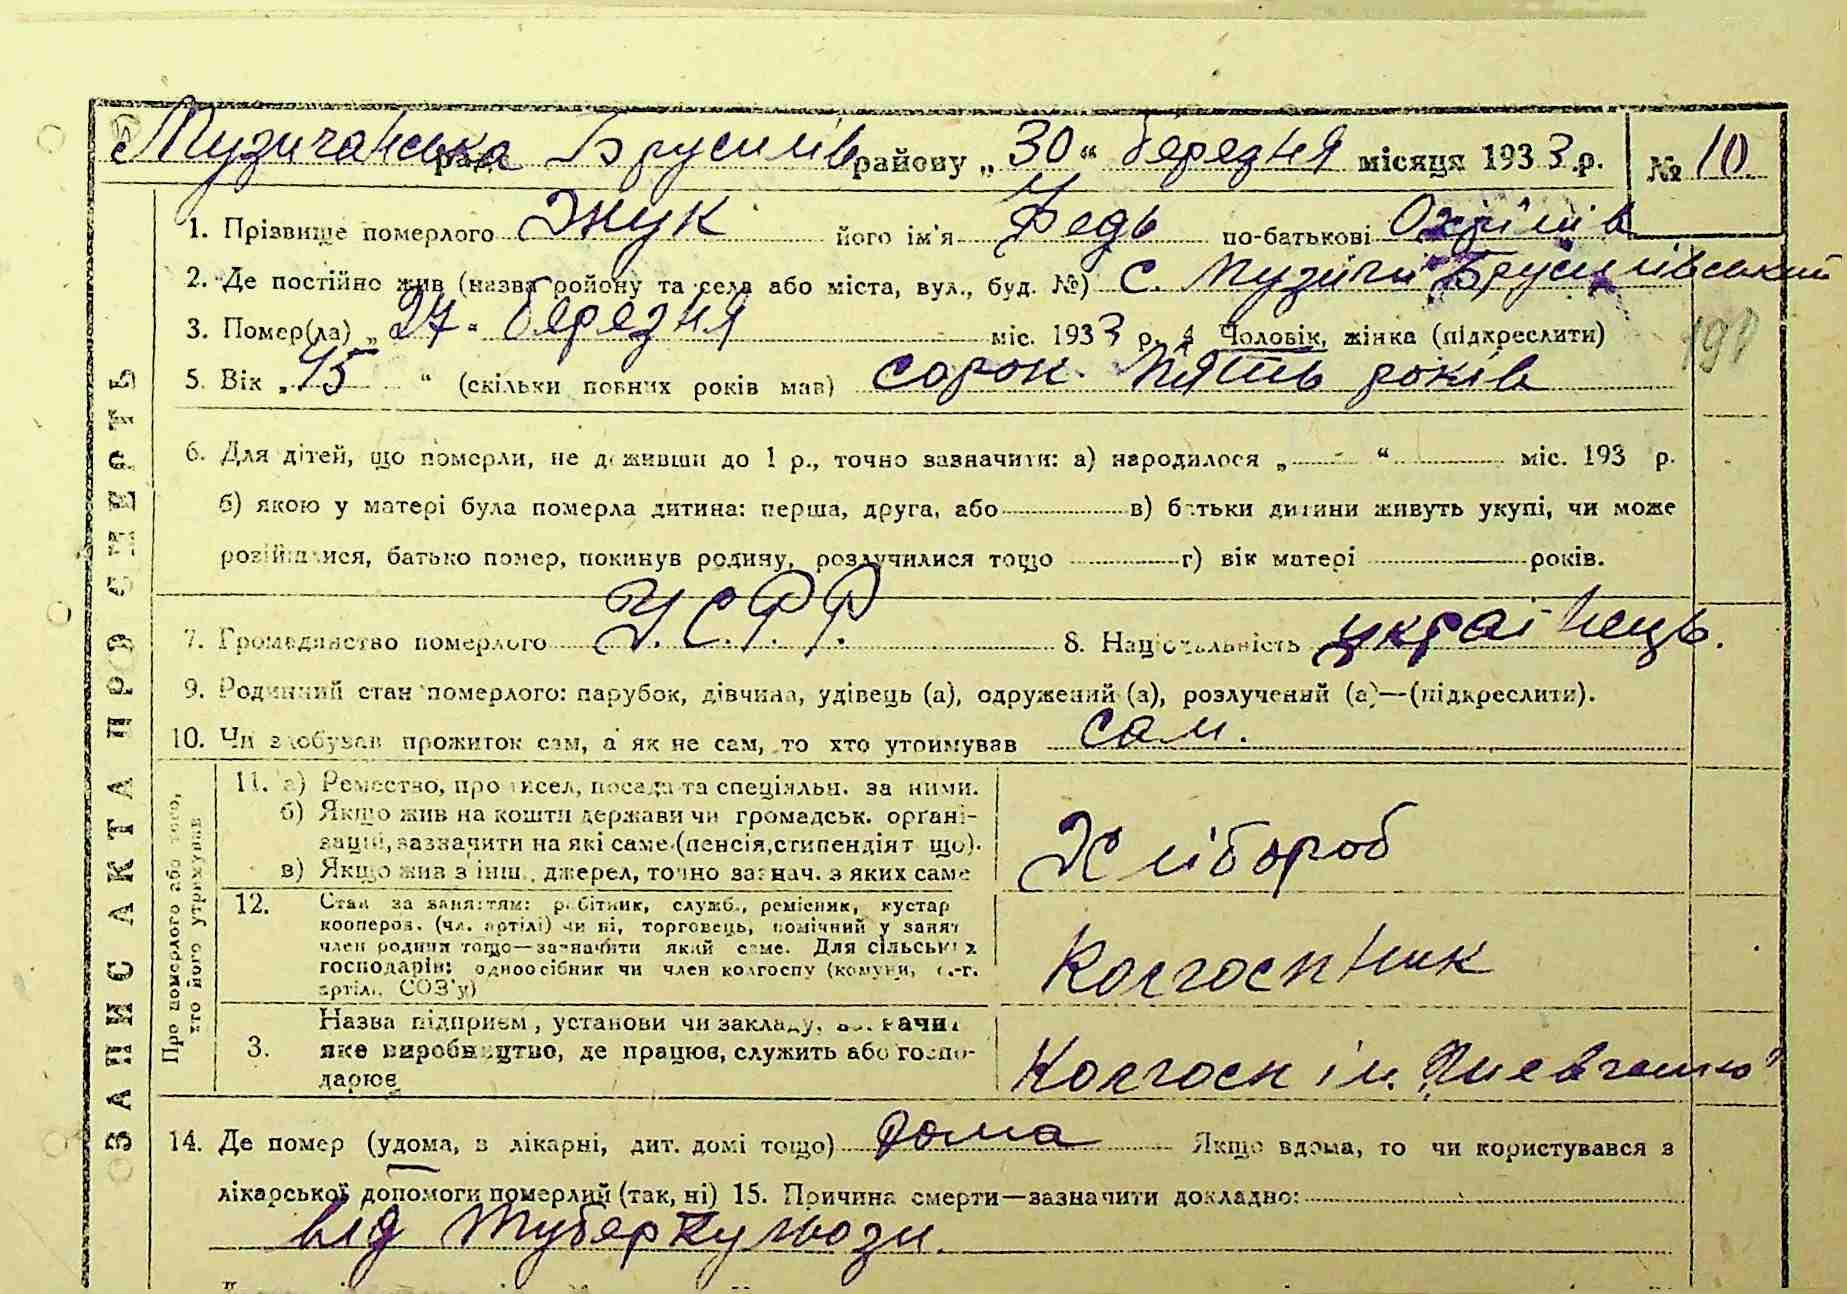 Музичанська рада Брусилів району „30“ березня місяця 1933.р. № 10
1. Прізвище померлого Жук його ім'я Федь по-батькові Охрімів
2. Де постійно жив (назва району та села або міста, вул., буд. №) С. Музичі Брусилівський
3. Помер(ла) „27“ березня міс. 1933 р. 4 Чоловік, жінка (підкреслити)
5. Вік „45“ (скільки повних років мав) сорок пять років
6. Для дітей, що померли, не доживши до 1 р., точно зазначити: а) народилося „ “ міс. 193 р.
б) якою у матері була померла дитина: перша, друга, або в) батьки дитини живуть укупі, чи може
розійшлися, батько помер, покинув родину, розлучилися тощо г) вік матері років.
7. Громадянство померлого У.С.Р.Р. 8. Національність українець.
9. Родинний стан померлого: парубок, дівчина, удівець (а), одружений (а), розлучений (а)—(підкреслити).
10. Чи здобував прожиток сам, а як не сам, то хто утримував сам.
ЗАПИС АКТА ПРО СМЕРТЬ
Про померлого або того,
хто його утримував
11. а) Ремество, промисел, посада та спеціяльн. за ними.
б) Якщо жив на кошти держави чи громадськ. органі-
зацій, зазначити на які саме (пенсія, стипендіят що).
в) Якщо жив з інш. джерел, точно зазнач. з яких саме
Хлібороб
12. Стан за заняттям: робітник, служб., ремісник, кустар
кооперов. (чл. артілі) чи ні, торговець, помічний у занят
член родини тощо—зазначити який саме. Для сільських
господарів: одноосібник чи член колгоспу (комуни, с.-г.
артілі, СОЗ'у)
Колгоспник
Назва підприєм., установи чи закладу, зазначит
3. яке виробництво, де працює, служить або госпо-
дарює
Колгосп ім. „Шевченко“
14. Де помер (удома, в лікарні, дит. домі тощо) дома Якщо вдома, то чи користувався з
лікарської допомоги померлий (так, ні) 15. Причина смерти—зазначити докладно:
від туберкульози.